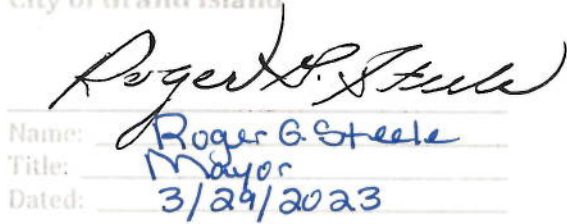 City of Grand Island
Roger G. Steele
Name: Roger G. Steele
Title: Mayor
Dated: 3/29/2023